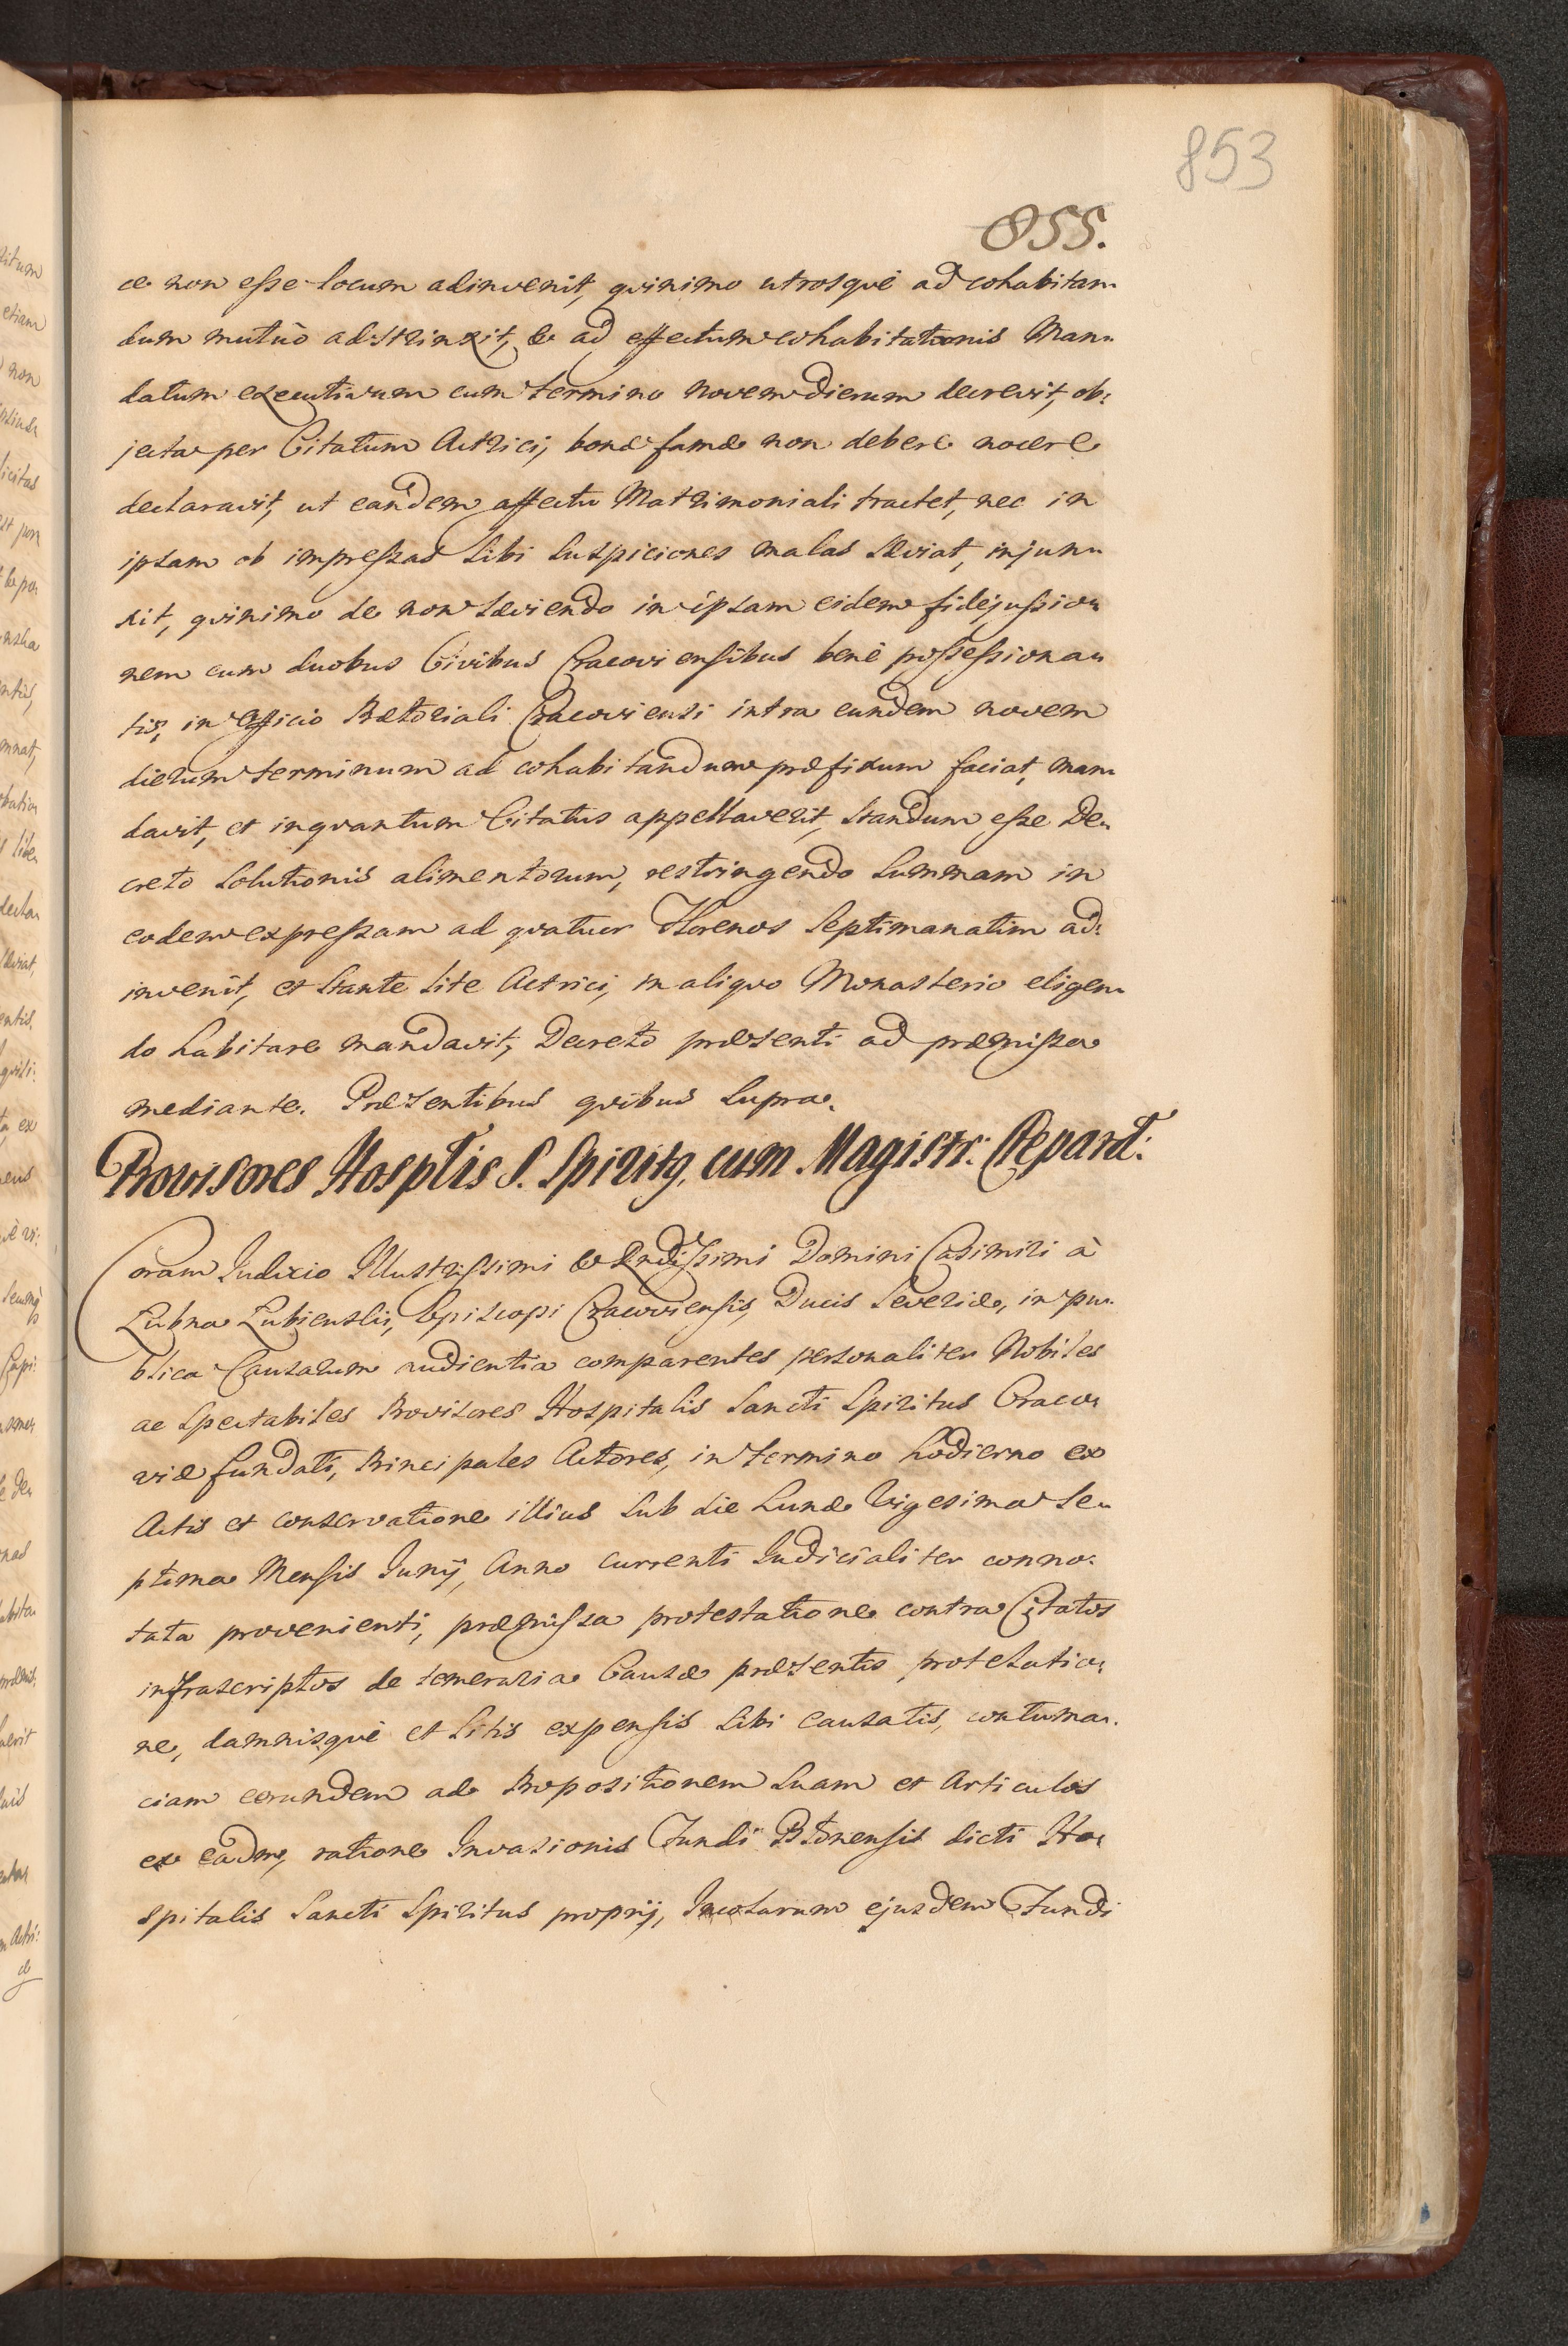 853
855.
ce non esse locum adinvenit, quinimo utrosque ad cohabitan„
dum mutuò adstrinxit, & ad effectum cohabitationis Man„
datum executivum cum termino novem dierum decrevit, ob„
jecta per Citatum Actrici, bonæ famæ non debere nocere
declaravit, ut eandem affectu Matrimoniali tractet, nec in
ipsam ob impressas sibi suspiciones malas sæviat, injun„
xit, quinimo de non sæviendo in ipsam eidem fidejussio„
nem cum duobus Civibus Cracoviensibus benè possessiona„
tis, in Officio Prætoriali Cracoviensi intra eundem novem
dierum terminum ad cohabitandum præfixum faciat, man„
davit, et inquantum Citatus appellaverit, standum esse De„
creto solutionis alimentorum, restringendo summam in
eodem expressam ad quatuor Florenos septimanatim ad„
invenit, et stante lite Actrici, in aliquo Monasterio eligen„
do habitare mandavit, Decreto præsenti ad præmissa
mediante. Præsentibus quibus supra.
Provisores Hosptis S. Spiritq, cum Magistr: Clepard:
Coram Judicio Illustrissimi & Rndissimi Domini Casimiri à
Łubna Łubienski, Episcopi Cracoviensis, Ducis Severiæ, in pu„
blica Causarum audientia comparentes personaliter Nobiles
ac Spectabiles Provisores Hospitalis Sancti Spiritus Craco„
viæ fundati, Principales Actores, in termino hodierno ex
Actis et conservatione illius sub die Lunæ Vigesima se„
ptima Mensis Junij, Anno currenti Judicialiter conno„
tata provenienti, præmissa protestatione contra Citatos
infrascriptos de temeraria Causæ præsentis protelatio„
ne, damnisque et litis expensis sibi causatis, contuma„
ciam eorundem ad Propositionem suam et Articulos
ex eadm, ratione Invasionis Fundi Błonensis dicti Ho„
spitalis Sancti Spiritus proprij, Incolarum ejusdem Fundi